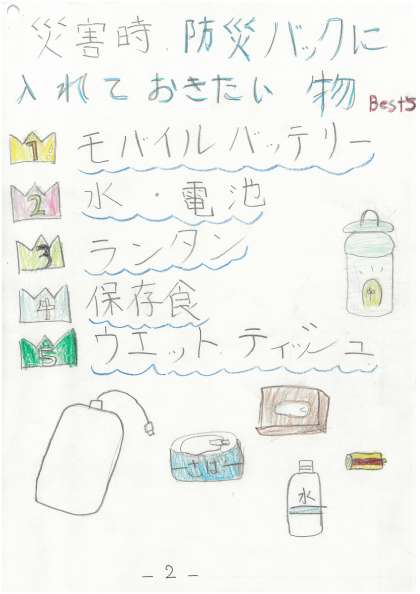 災害時、防災バックに
入れておきたい 物 Best5
1 モバイルバッテリー
2 水・電池
3 ランタン
4 保存食
5 ウエットティッシュ
さば
水
- 2 -